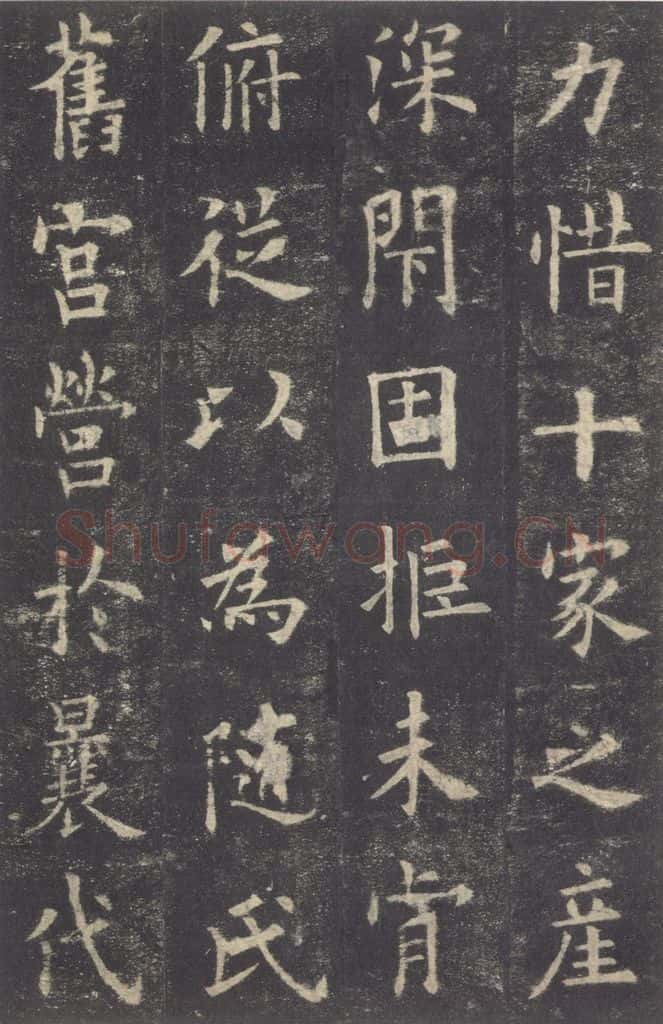 力惜十家之產
深閇固拒未肯
俯從以為隨氏
舊宮營於曩代
Shufawang.CN